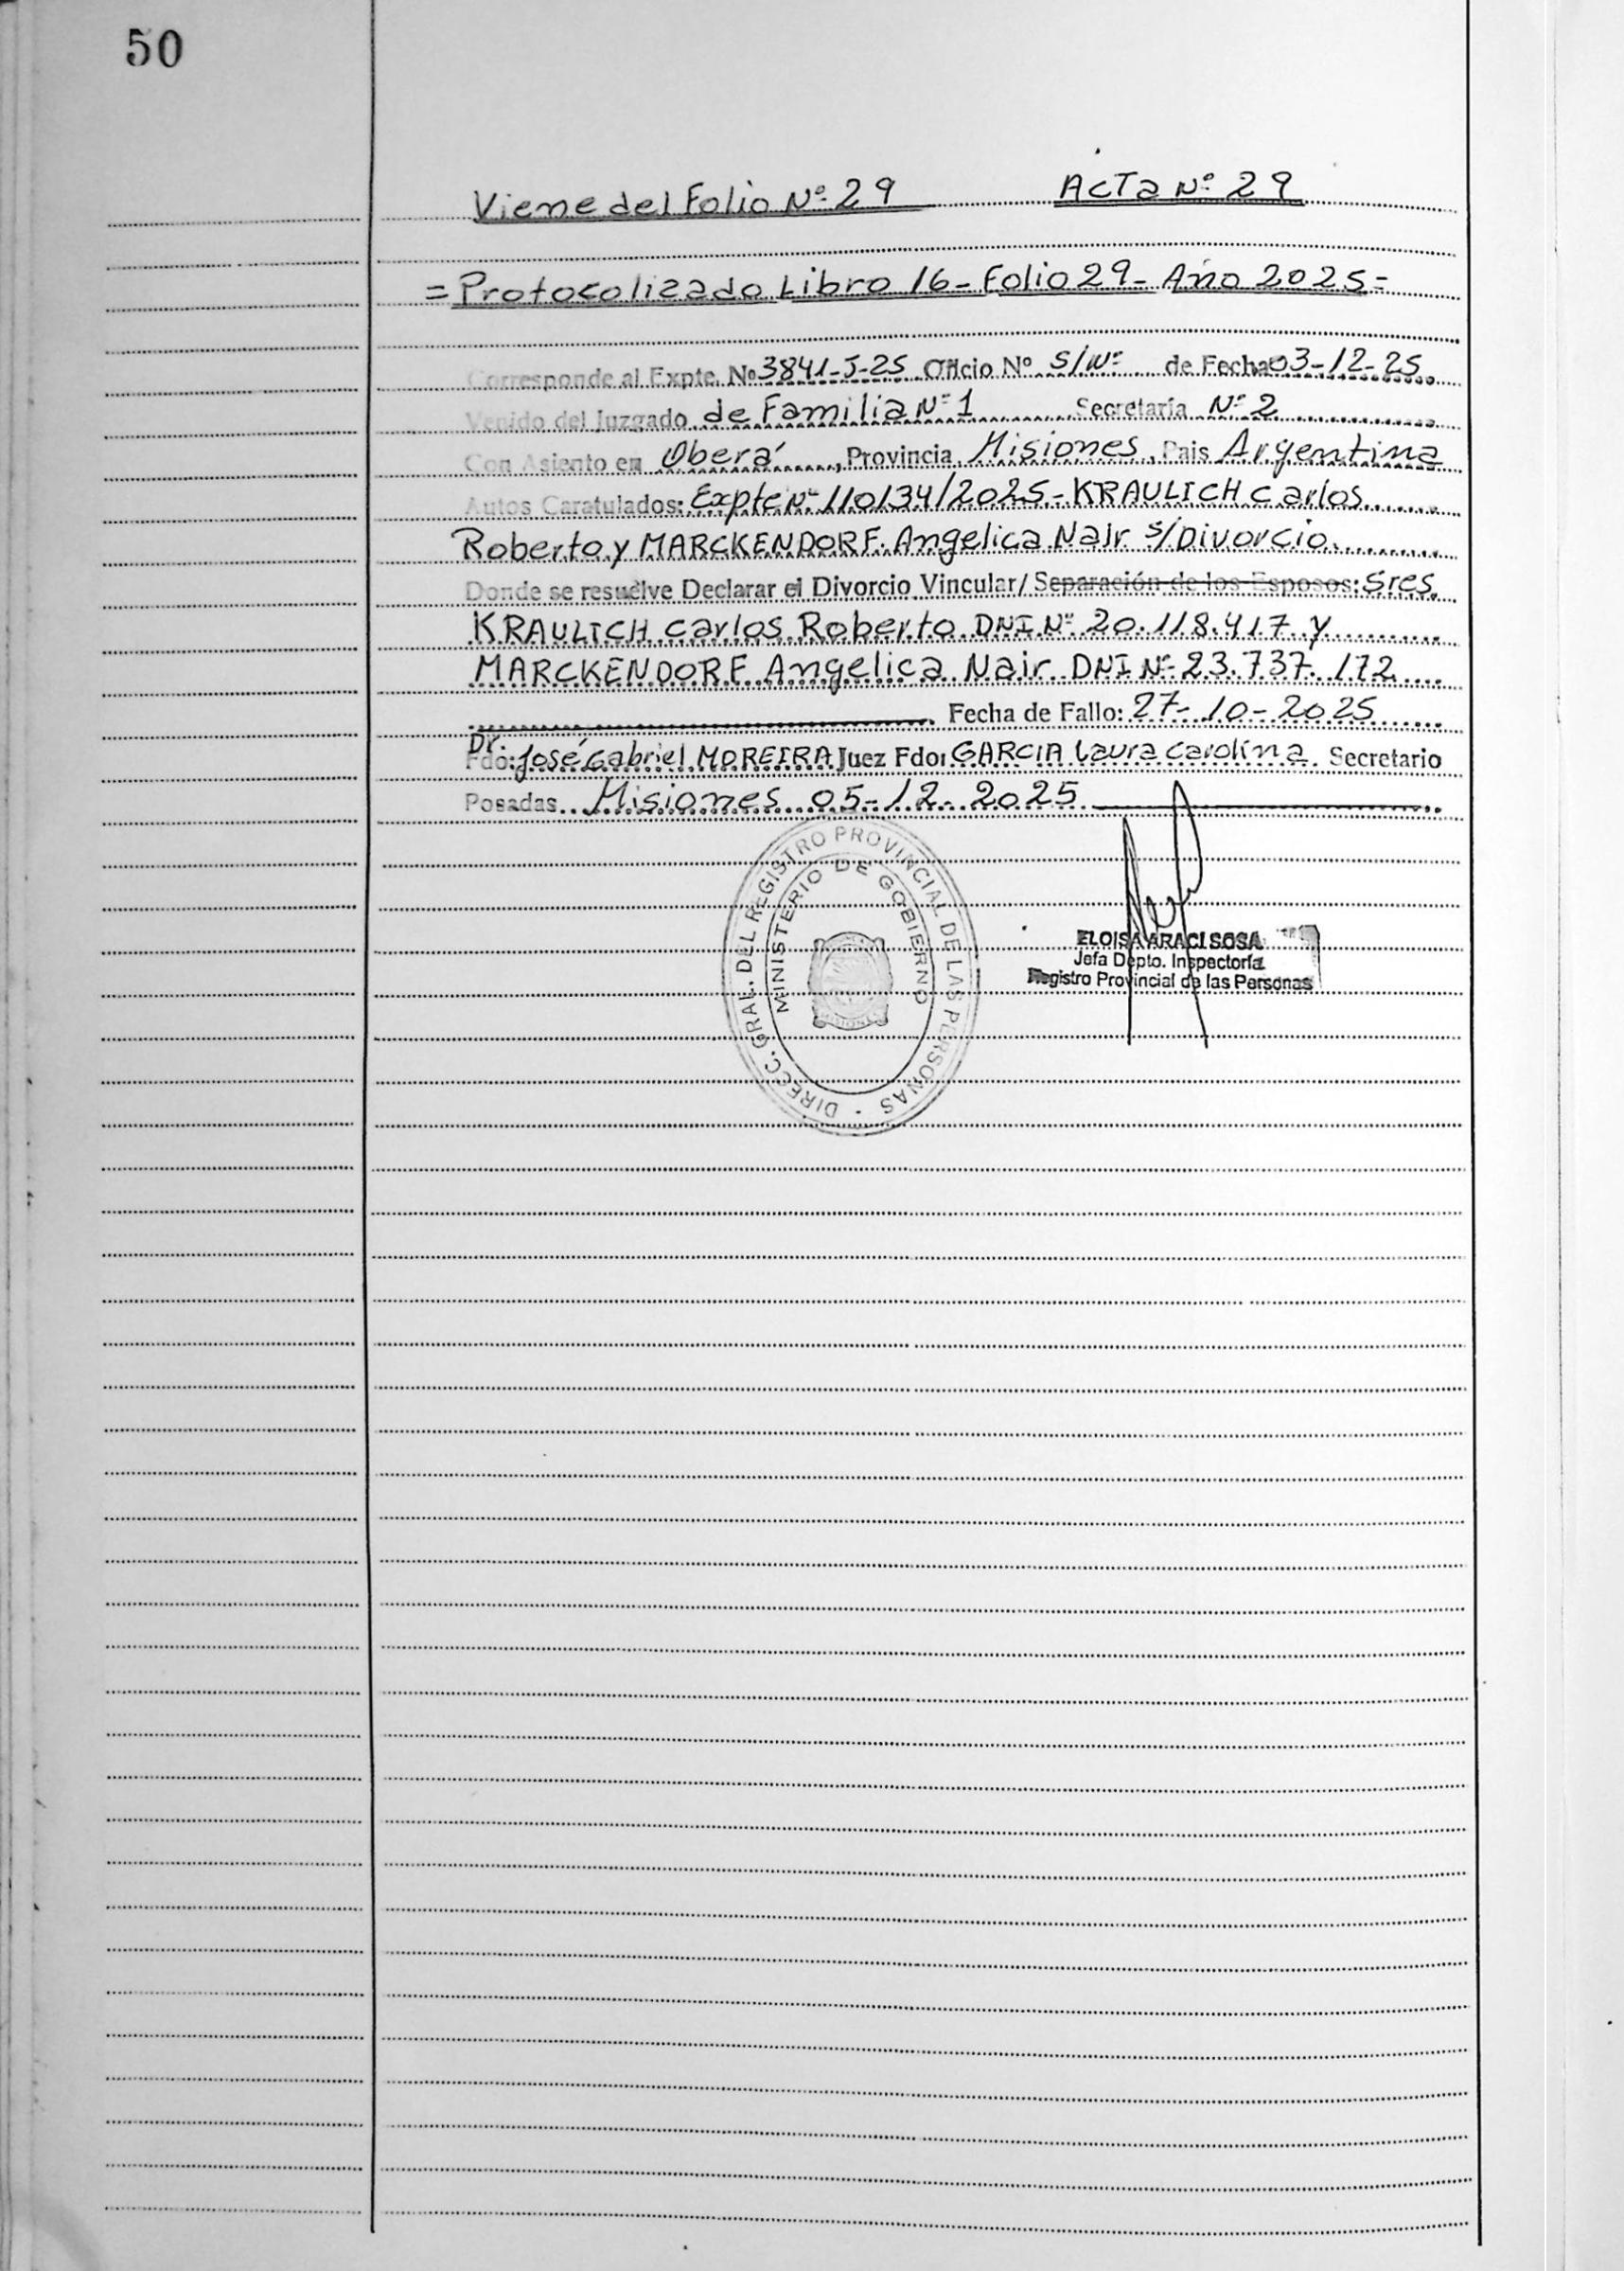 50
Viene del Folio Nº 29 Acta Nº 29
= Protocolizado Libro 16 - Folio 29 - Año 2025 =
Corresponde al Expte. Nº 3841-J-25 Oficio Nº S/Nº de Fecha 03-12-25
Venido del Juzgado de Familia Nº 1 Secretaría Nº 2
Con Asiento en Oberá, Provincia Misiones, Pais Argentina
Autos Caratulados: Expte Nº 110134/2025 - KRAULICH Carlos
Roberto y MARCKENDORF Angelica Nair s/Divorcio
Donde se resuelve Declarar el Divorcio Vincular/ Separación de los Esposos: Sres.
KRAULICH Carlos Roberto DNI Nº 20.118.417 y
MARCKENDORF Angelica Nair DNI Nº 23.737.172
Fecha de Fallo: 27-10-2025
Fdo: Dr. José Gabriel MOREIRA Juez Fdo: GARCIA Laura Carolina Secretario
Posadas Misiones 05-12-2025
DIRECC. GRAL. DEL REGISTRO PROVINCIAL DE LAS PERSONAS
MINISTERIO DE GOBIERNO
MISIONES
ELOISA ARACI SOSA
Jefa Depto. Inspectoría
Registro Provincial de las Personas